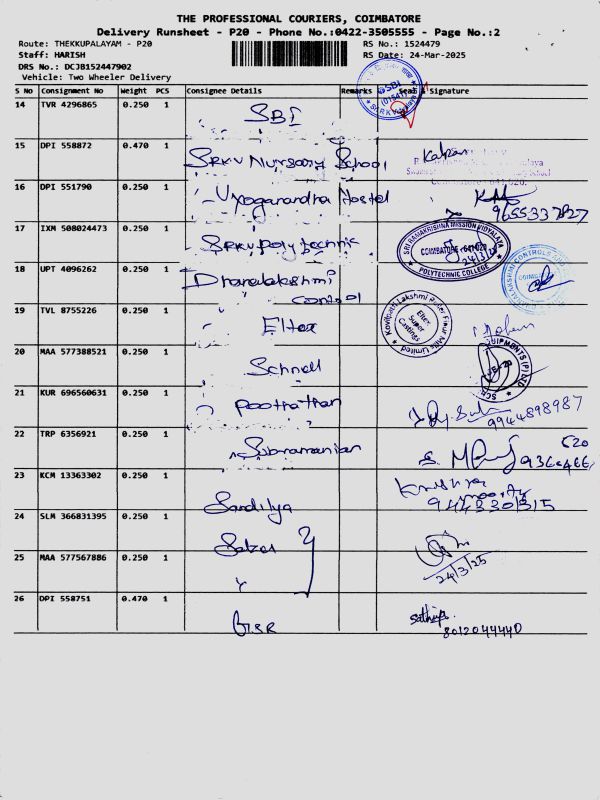 THE PROFESSIONAL COURIERS, COIMBATORE
Delivery Runsheet - P20 - Phone No.:0422-3505555 - Page No.:2
Route: THEKKUPALAYAM - P20 RS No.: 1524479
Staff: HARISH RS Date: 24-Mar-2025
DRS No.: DCJB152447902
Vehicle: Two Wheeler Delivery
S No Consignment No Weight PCS Consignee Details Remarks Seal & Signature
14 TVR 4296865 0.250 1 SBI
SBI
15 DPI 558872 0.470 1 SRKV Nursary School Kalpana
16 DPI 551790 0.250 1 Vyoganandha Hostel
9655337827
17 IXM 508024473 0.250 1 SRKV Polytechnic
SRI RAMAKRISHNA MISSION VIDYALAYA
COIMBATORE - 641020
24/3/25
POLYTECHNIC COLLEGE
18 UPT 4096262 0.250 1 Dhanalakshmi
control
19 TVL 8755226 0.250 1 Eltex
Kovilpatti Lakshmi Roller Flour Mills Limited
Eltex
Super
Castings
20 MAA 577388521 0.250 1 Schnell
21 KUR 696560631 0.250 1 Poothathan
9944898987
22 TRP 6356921 0.250 1 Subramanian
23 KCM 13363302 0.250 1 Sandilya
24 SLM 366831395 0.250 1 Salzer
25 MAA 577567886 0.250 1 "
24/3/25
26 DPI 558751 0.470 1 GSR
8012044440